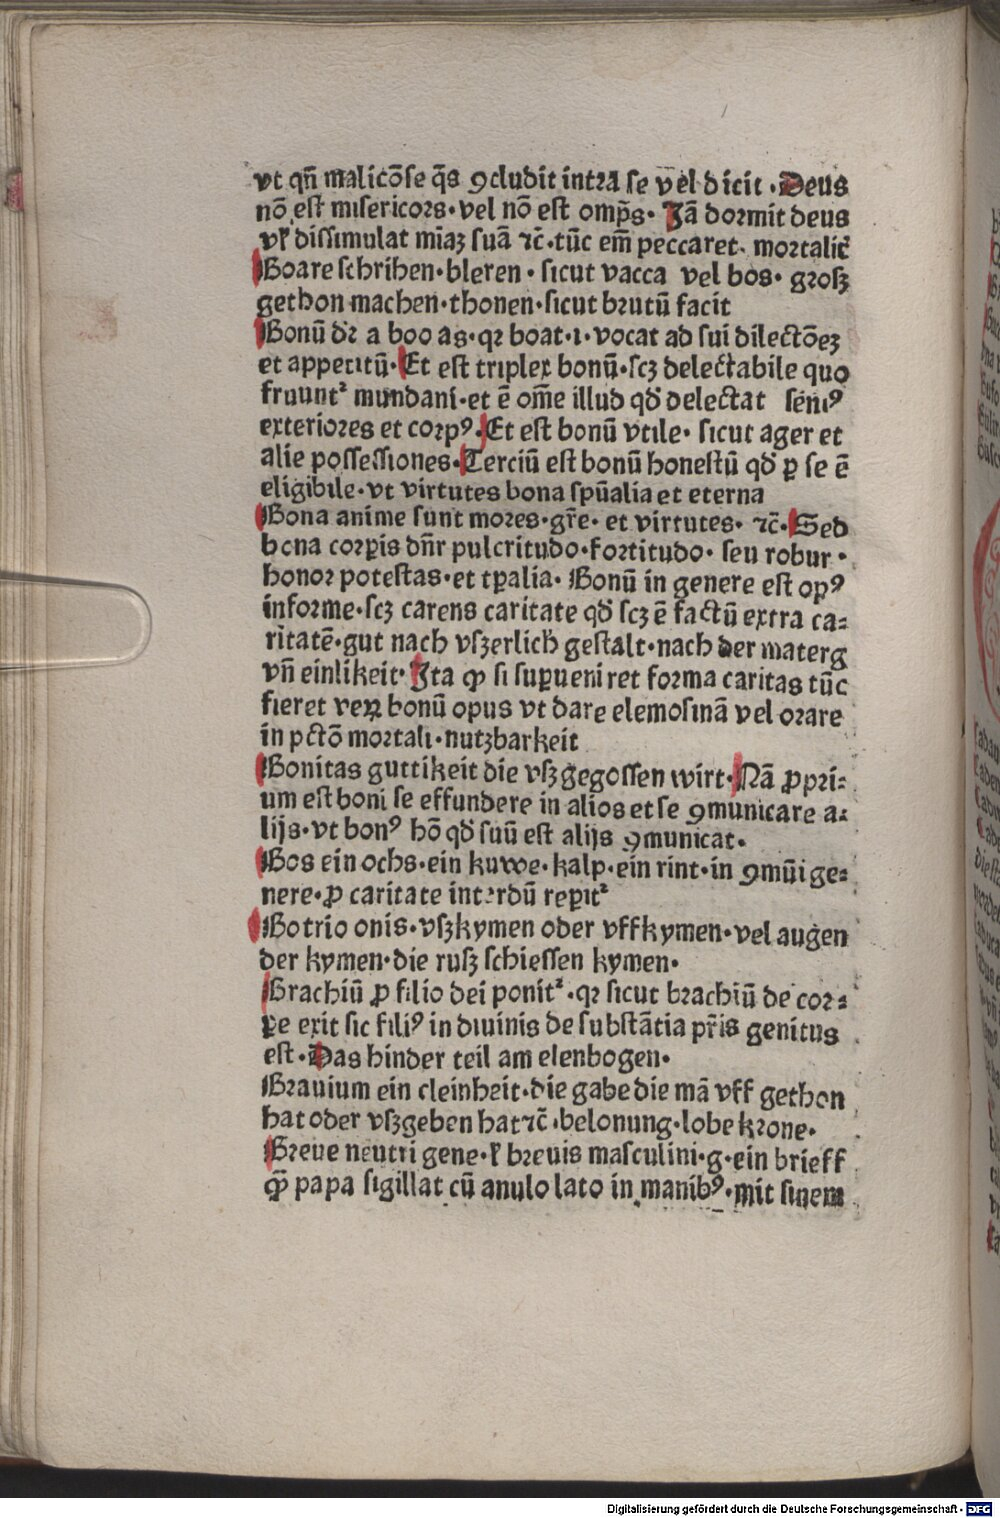 vt qn̄ malicōse q̄s ꝯcludit intra se vel dicit · Deus
nō est misericors · vel nō est omp̄s · Jā dormit deus
vł dissimulat mīaꝫ suā ⁊c̄ · tūc em̄ peccaret · mortalit̄
Boare schrihen · bleren · sicut vacca vel bos · grosz
gethon machen · thonen · sicut brutū facit
Bonū dr̄ a boo as · qꝛ boat · i · vocat ad sui dilectōeꝫ
et appetitū · Et est triplex bonū · scꝫ delectabile quo
fruunt᷑ mundani · et ē om̄e illud qd̓ delectat sensꝰ
exteriores et corpꝰ · Et est bonū vtile · sicut ager et
alie possessiones · Terciū est bonū honestū qd̓ ꝑ se ē
eligibile · vt virtutes bona spūalia et eterna
Bona anime sunt mores · gr̄e · et virtutes · ⁊c̄ · Sed
bona corꝑis dn̄r pulcritudo · fortitudo · seu robur ·
honor potestas · et tꝑalia · Bonū in genere est opꝰ
informe · scꝫ carens caritate qd̓ scꝫ ē factū extra ca⸗
ritatē · gut nach vszerlich gestalt · nach der materg
vn̄ einlikeit · Ita ꝙ si suꝑueniret forma caritas tūc
fieret veꝝ bonū opus vt dare elemosinā vel orare
in pctō mortali · nutzbarkeit
Bonitas guttikeit die vsz gegossen wirt · Nā ꝓpri⸗
um est boni se effundere in alios et se ꝯmunicare a⸗
lijs · vt bonꝰ hō qd̓ suū est alijs ꝯmunicat ·
Bos ein ochs · ein kuwe · kalp · ein rint · in ꝯmūi ge⸗
nere · ꝓ caritate interdū reꝑit᷑
Botrio onis · vszkymen oder vffkymen · vel augen
der kymen · die rusz schiessen kymen ·
Brachiū ꝓ filio dei ponit᷑ · qꝛ sicut brachiū de cor⸗
pe exit sic filiꝰ in diuinis de substātia pr̄is genitus
est · Das hinder teil am elenbogen ·
Brauium ein cleinheit · die gabe die mā vff gethon
hat oder vszgeben hat ⁊c̄ · belonung · lobe krone ·
Breue neutri gene · ł breuis masculini · g · ein brieff
ꝙ̄ papa sigillat cū anulo lato in manibꝰ · mit sinem
Digitalisierung gefördert durch die Deutsche Forschungsgemeinschaft - DFG